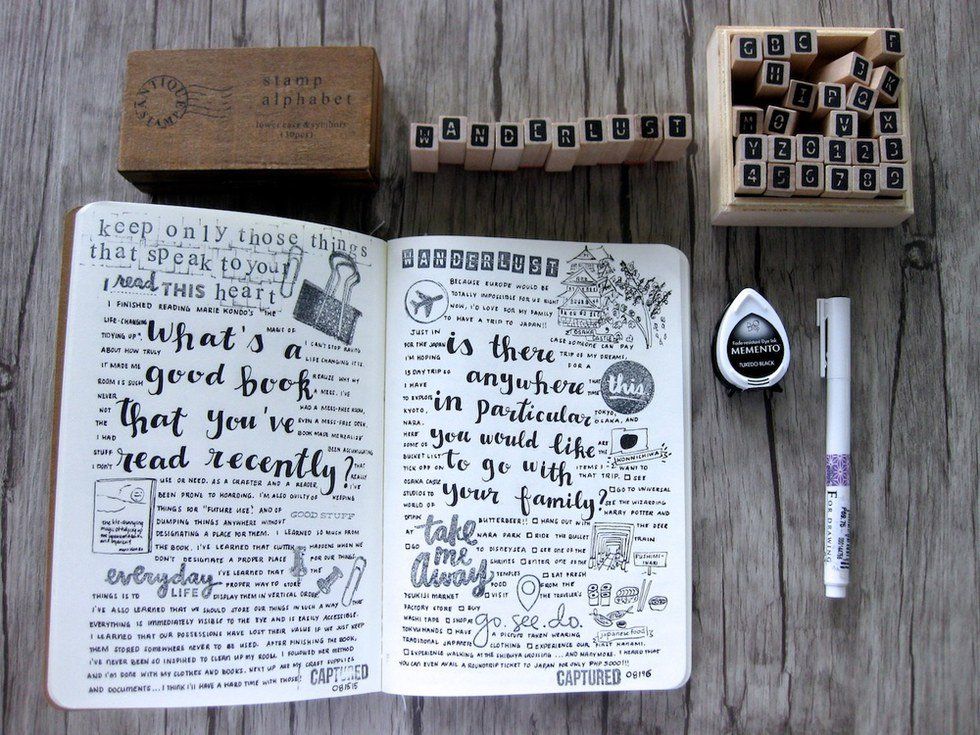 ANTIQUE
stamp
alphabet
lower case & symbols
(30pcs)
WANDERLUST
G B C F
H 3 K
I P Q
M O V X
Y Z 0 1 2 3
4 5 6 7 8 9
keep only those things
that speak to your
heart
I read THIS
I FINISHED READING MARIE KONDO'S "THE
LIFE-CHANGING MAGIC OF
TIDYING UP".
What's a
good book
that you've
read recently?
I CAN'T STOP RAVING
ABOUT HOW TRULY LIFE CHANGING IT IS.
IT MADE ME REALIZE WHY MY
ROOM IS SUCH A MESS. I'VE
NEVER HAD A MESS-FREE ROOM,
NOT EVEN A MESS-FREE DESK.
THE BOOK MADE ME REALIZE
I HAD BEEN ACCUMULATING
STUFF THAT
I DON'T REALLY
USE OR NEED. AS A CRAFTER AND A READER, I'VE
BEEN PRONE TO HOARDING. I'M ALSO GUILTY OF KEEPING
THINGS FOR "FUTURE USE", AND OF
GOOD STUFF
DUMPING THINGS ANYWHERE WITHOUT
DESIGNATING A PLACE FOR THEM. I LEARNED SO MUCH FROM
THE BOOK. I'VE LEARNED THAT CLUTTER HAPPENS WHEN WE
DON'T DESIGNATE A PROPER PLACE FOR OUR THINGS.
the life-changing
magic of tidying up
marie kondo
everyday
LIFE
I'VE LEARNED THAT THE
PROPER WAY TO STORE
THINGS IS TO DISPLAY THEM IN VERTICAL ORDER.
I'VE ALSO LEARNED THAT WE SHOULD STORE OUR THINGS IN SUCH A WAY THAT
EVERYTHING IS IMMEDIATELY VISIBLE TO THE EYE AND IS EASILY ACCESSIBLE.
I LEARNED THAT OUR POSSESSIONS HAVE LOST THEIR VALUE IF WE JUST KEEP
THEM STORED SOMEWHERE NEVER TO BE USED. AFTER FINISHING THE BOOK,
I'VE NEVER BEEN SO INSPIRED TO CLEAN UP MY ROOM. I FOLLOWED HER METHOD
AND I'M DONE WITH MY CLOTHES AND BOOKS. NEXT UP ARE MY CRAFT SUPPLIES
AND DOCUMENTS... I THINK I'LL HAVE A HARD TIME WITH THOSE!
CAPTURED
081515
WANDERLUST
BECAUSE EUROPE WOULD BE
TOTALLY IMPOSSIBLE FOR US RIGHT
NOW, I'D LOVE FOR MY FAMILY
TO HAVE A TRIP TO JAPAN!!
OSAKA
CASTLE
JUST IN CASE SOMEONE CAN PAY
FOR THE JAPAN TRIP OF MY DREAMS,
is there
anywhere
in particular
you would like
to go with
your family?
this
I'M HOPING FOR A
I HAVE THAT
TO EXPLORE TOKYO,
KYOTO, OSAKA, AND
NARA.
HERE ARE
SOME OF THE
KONNICHIWA
BUCKET LIST ITEMS I WANT TO
TICK OFF ON THAT TRIP. SEE
OSAKA CASTLE GO TO UNIVERSAL
STUDIOS TO SEE THE WIZARDING
WORLD OF HARRY POTTER AND
BUTTERBEER!! HANG OUT WITH THE DEER
AT NARA PARK RIDE THE BULLET TRAIN
GO TO DISNEYSEA SEE ONE OF THE
SHRINES ENTER ONE OF THE
TEMPLES EAT FRESH
FOOD FROM THE
TSUKIJI MARKET VISIT THE TRAVELER'S
FACTORY STORE BUY
WASHI TAPE SHOP AT
TOKYU HANDS HAVE A PICTURE TAKEN WEARING
TRADITIONAL JAPANESE CLOTHING EXPERIENCE OUR FIRST HANAMI.
EXPERIENCE WALKING AT THE SHIBUYA CROSSING ... AND MANY MORE. I HEARD THAT
YOU CAN EVEN AVAIL A ROUNDTRIP TICKET TO JAPAN FOR ONLY PHP 5000!!!
take
me
away
go. see. do.
FUSHIMI-
INARI
japanese food
CAPTURED
081915
Fade-resistant Dye Ink
MEMENTO
TUXEDO BLACK
FOR DRAWING